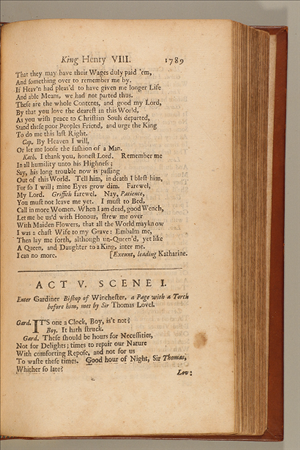 King Henry VIII. 1789
That they may have their Wages duly paid 'em,
And something over to remember me by.
If Heav'n had pleas'd to have given me longer Life
And able Means, we had not parted thus.
These are the whole Contents, and good my Lord,
By that you love the dearest in this World,
As you wish peace to Christian Souls departed,
Stand these poor Peoples Friend, and urge the King
To do me this last Right.
Cap. By Heaven I will,
Or let me loose the fashion of a Man.
Kath. I thank you, honest Lord. Remember me
In all humility unto his Highness;
Say, his long trouble now is passing
Out of this World. Tell him, in death I blest him,
For so I will; mine Eyes grow dim. Farewel,
My Lord. Griffith farewel. Nay, Patience,
You must not leave me yet. I must to Bed,
Call in more Women. When I am dead, good Wench,
Let me be us'd with Honour, strew me over
With Maiden Flowers, that all the World may know
I was a chast Wife to my Grave: Embalm me,
Then lay me forth, although un-Queen'd, yet like
A Queen, and Daughter to a King, inter me.
I can no more. [Exeunt, leading Katharine.
ACT V. SCENE I.
Enter Gardiner Bishop of Winchester, a Page with a Torch
before him, met by Sir Thomas Lovel.
Gard. IT'S one a Clock, Boy, is't not?
Boy. It hath struck.
Gard. These should be hours for Necessities,
Not for Delights; times to repair our Nature
With comforting Repose, and not for us
To waste these times. Good hour of Night, Sir Thomas,
Whither so late?
Lov: